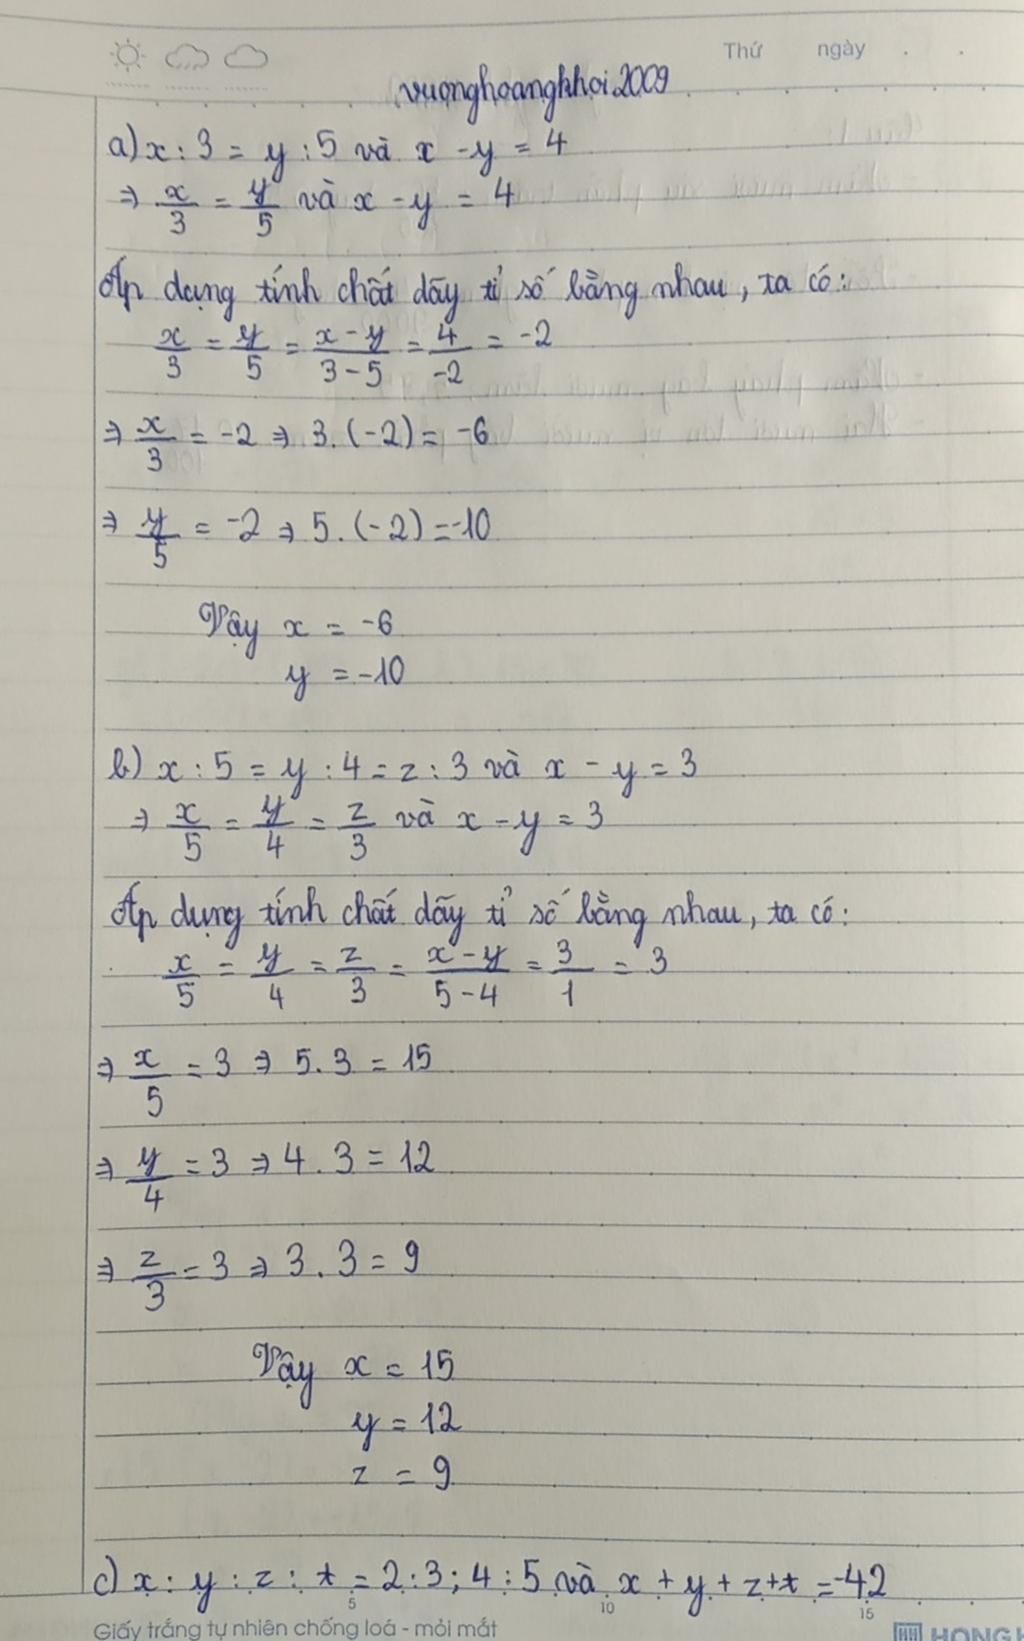 Thứ ngày . .
vuonghoangkhoi2009
a) x : 3 = y : 5 và x - y = 4
⇒ x/3 = y/5 và x - y = 4
Áp dụng tính chất dãy tỉ số bằng nhau, ta có:
x/3 = y/5 = x - y/3 - 5 = 4/-2 = -2
⇒ x/3 = -2 ⇒ 3. (-2) = -6
⇒ y/5 = -2 ⇒ 5. (-2) = -10
Vậy x = -6
y = -10
b) x : 5 = y : 4 = z : 3 và x - y = 3
⇒ x/5 = y/4 = z/3 và x - y = 3
Áp dụng tính chất dãy tỉ số bằng nhau, ta có:
x/5 = y/4 = z/3 = x - y/5 - 4 = 3/1 = 3
⇒ x/5 = 3 ⇒ 5. 3 = 15
⇒ y/4 = 3 ⇒ 4 . 3 = 12
⇒ z/3 = 3 ⇒ 3 . 3 = 9
Vậy x = 15
y = 12
z = 9
c) x : y : z : t = 2 : 3 ; 4 : 5 và x + y + z + t = -42
5 10 15
Giấy trắng tự nhiên chống loá - mỏi mắt